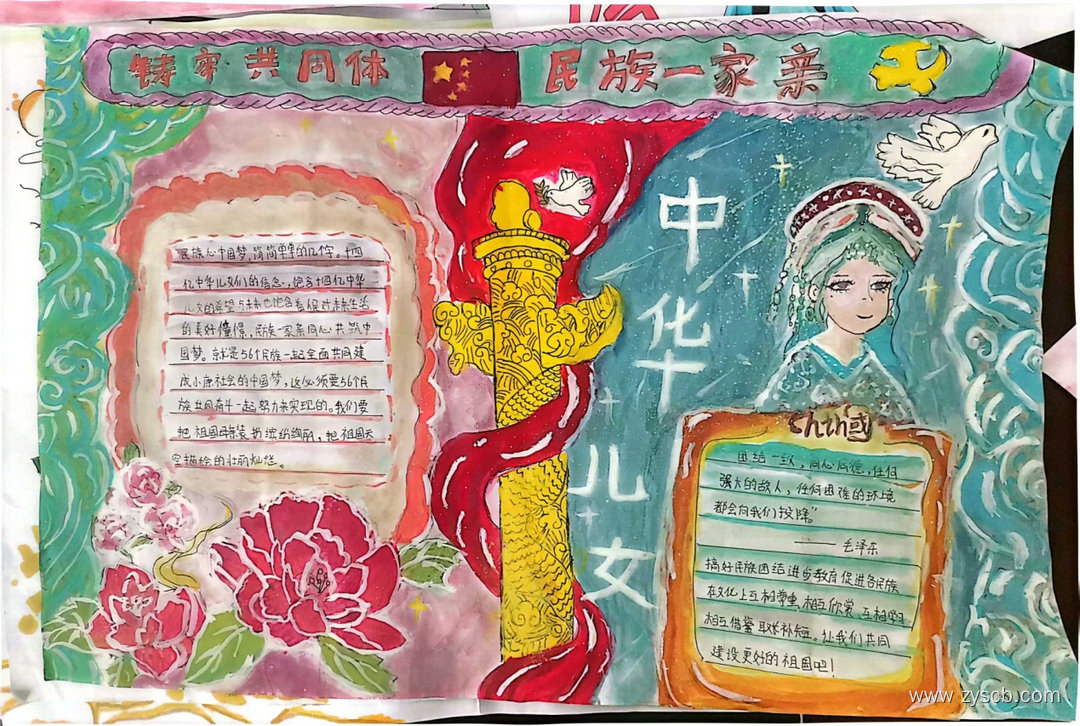 铸牢共同体 民族一家亲
民族心中国梦,简简单单的几个字。十四
亿中华儿女们的信念,饱含十四亿中华
儿女的希望与未来也饱含着保对未来生活
的美好憧憬,民族一家亲同心共筑中
国梦。就是56个民族一起全面共同建
成小康社会的中国梦,这必须要56个民
族共同奋斗一起努力来实现的。我们要
把祖国母亲装扮缤纷绚丽,把祖国天
空描绘的壮丽灿烂。
中华儿女
chin国
团结一致,同心同德,任何
强大的敌人,任何困难的环境
都会向我们投降"
——毛泽东
搞好民族团结进步教育促进各民族
在文化上互相尊重 相互欣赏 互相学习
相互借鉴 取长补短。让我们共同
建设更好的祖国吧!
www.zyscb.com